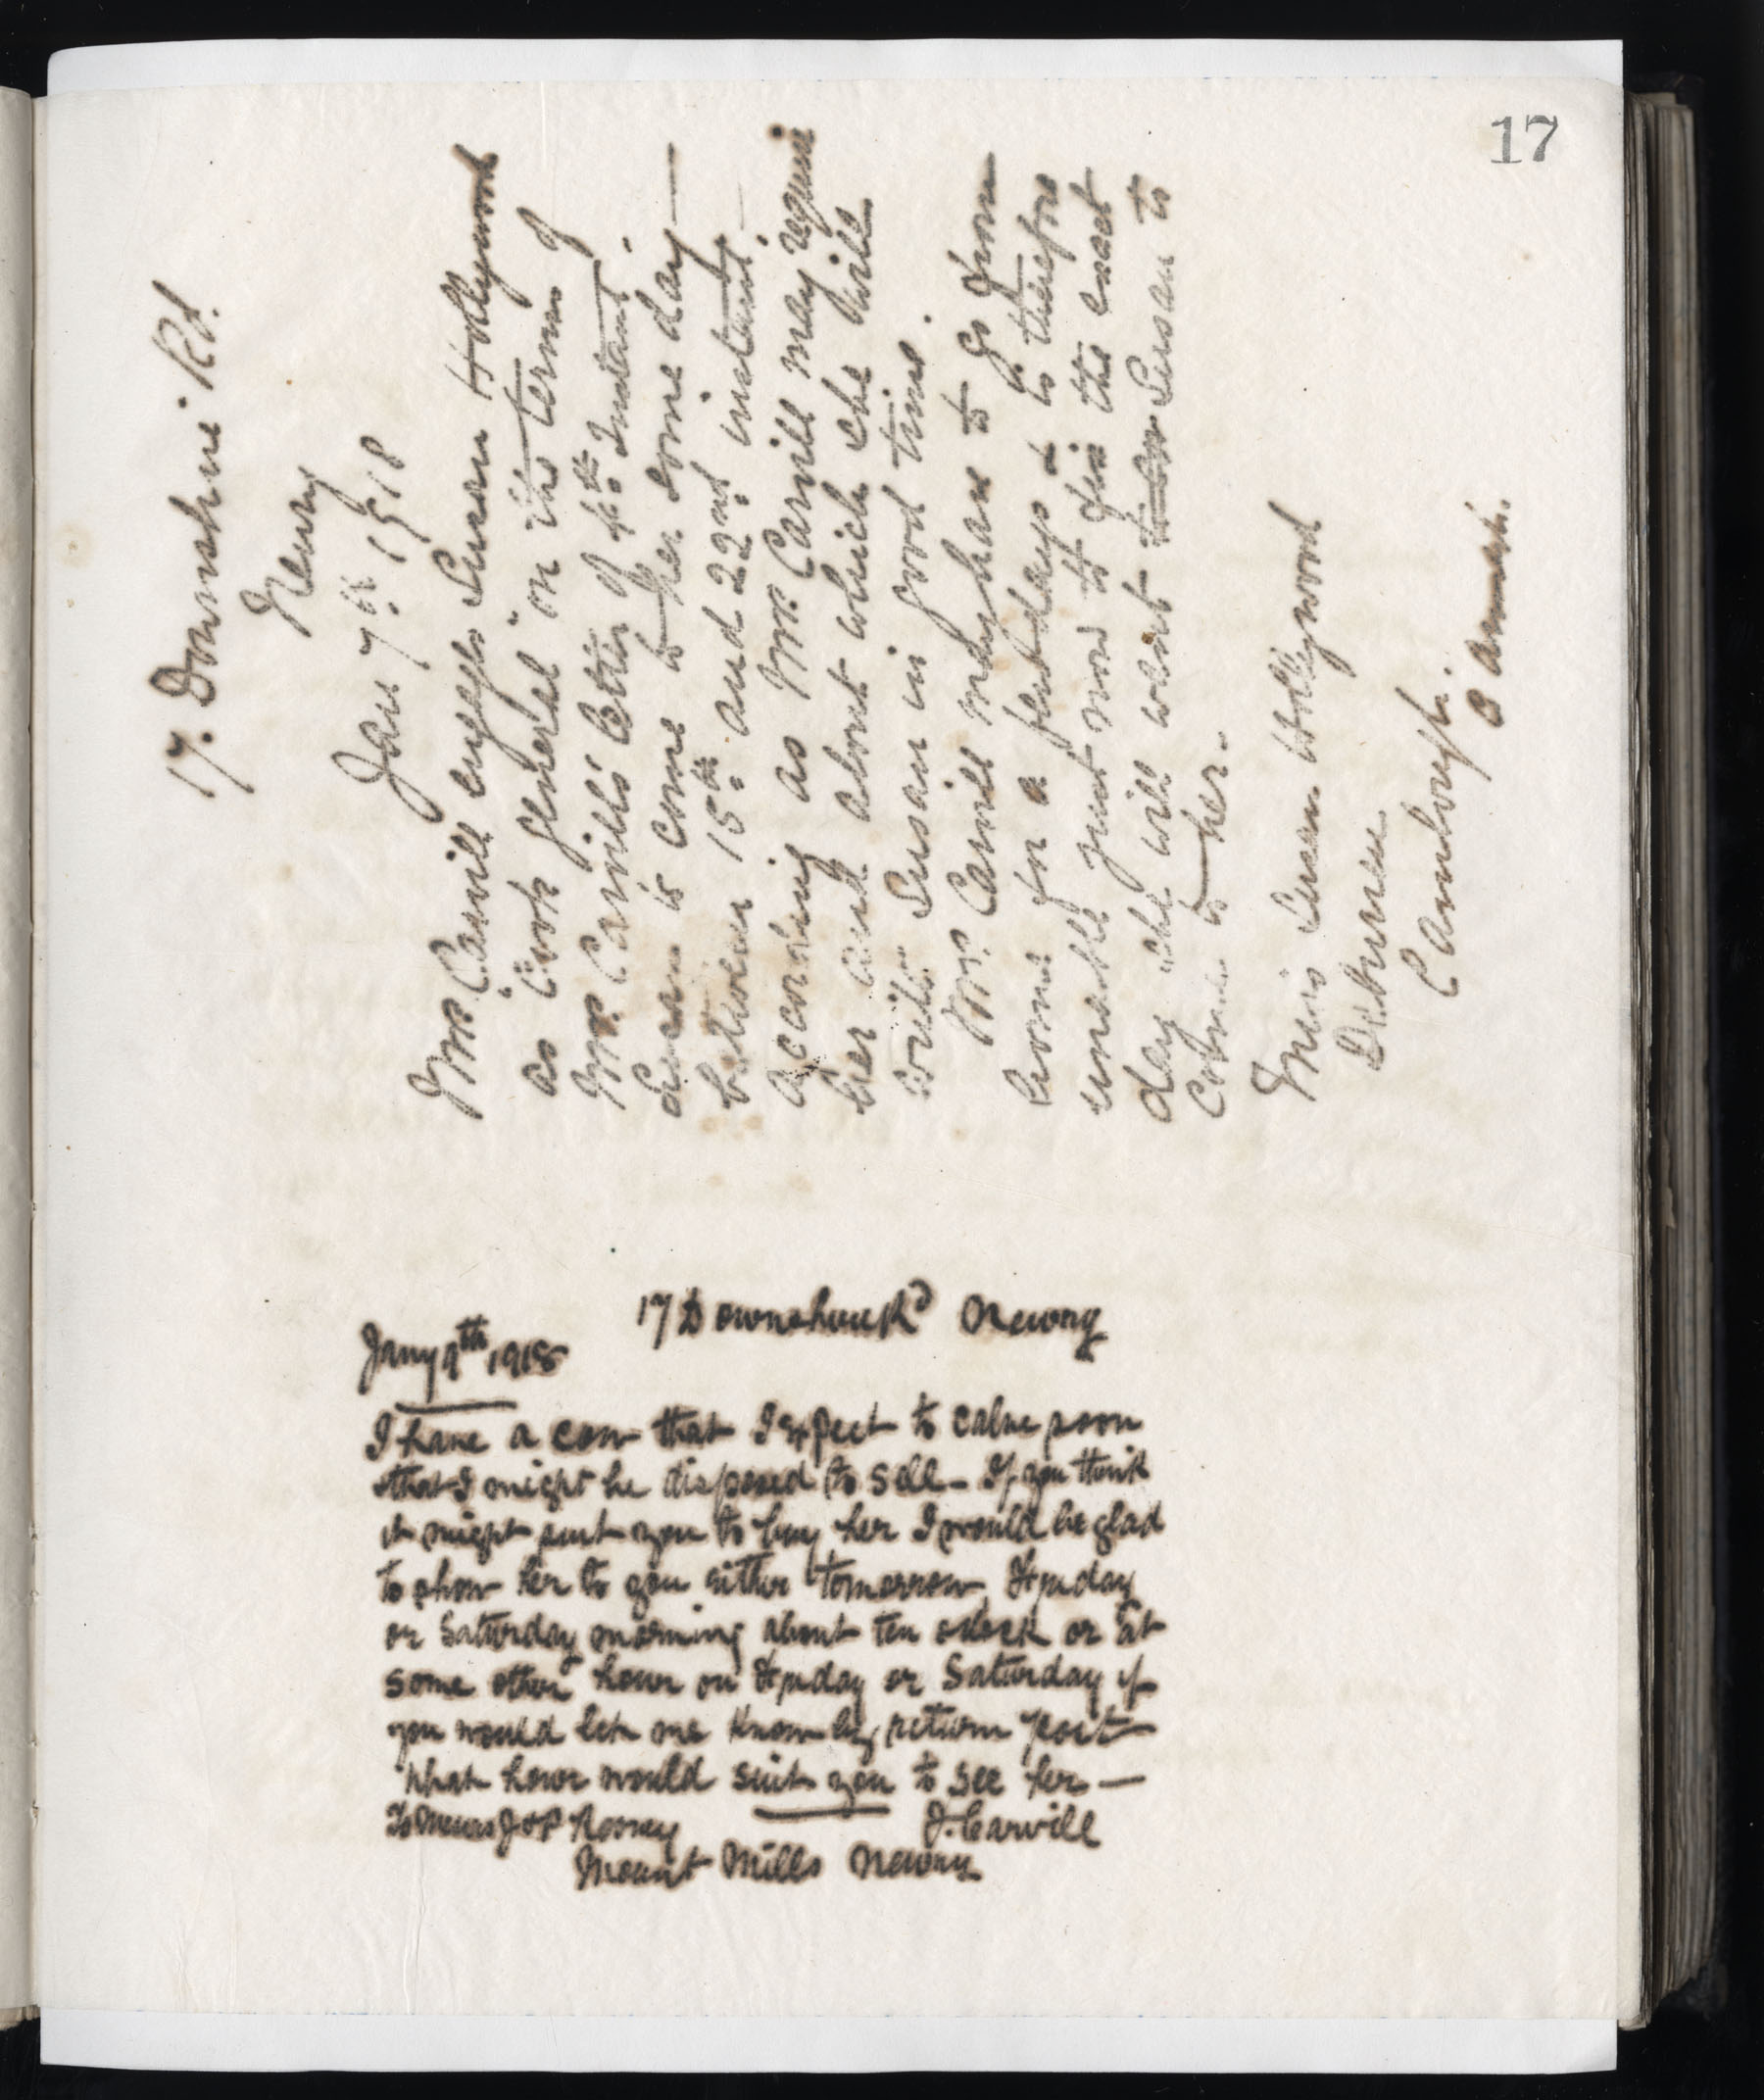 17
17. Downshire Rd.
Newry
Jan 7th 1918
Mrs Carvill engages Susan Hollywood
as "Cook General" on the terms of
Mrs. Carvills' letter of 4th Instant.
Susan is come to her some day —
between 15th and 22nd instant. —
according as Mrs. Carvill may require
her and about which she will
write Susan in good time.
Mrs. Carvill may have to go from
home for a few days & is therefore
unable just now to fix the exact
day she will want Susan to
Come to her. -
Miss Susan Hollywood
Camlough.
Co Armagh.
17 Downshire Rd Newry
Jany 9th 1918
I have a cow that I expect to calve soon
that I might be disposed to sell - If you think
it might suit you to buy her I would be glad
to show her to you either tomorrow, Friday
or Saturday morning about ten oclock or at
some other hour on Friday or Saturday if
you would let me know by return post
what hour would suit you to see her —
To Messrs J & P J. Carvill
Mount Mills Newry